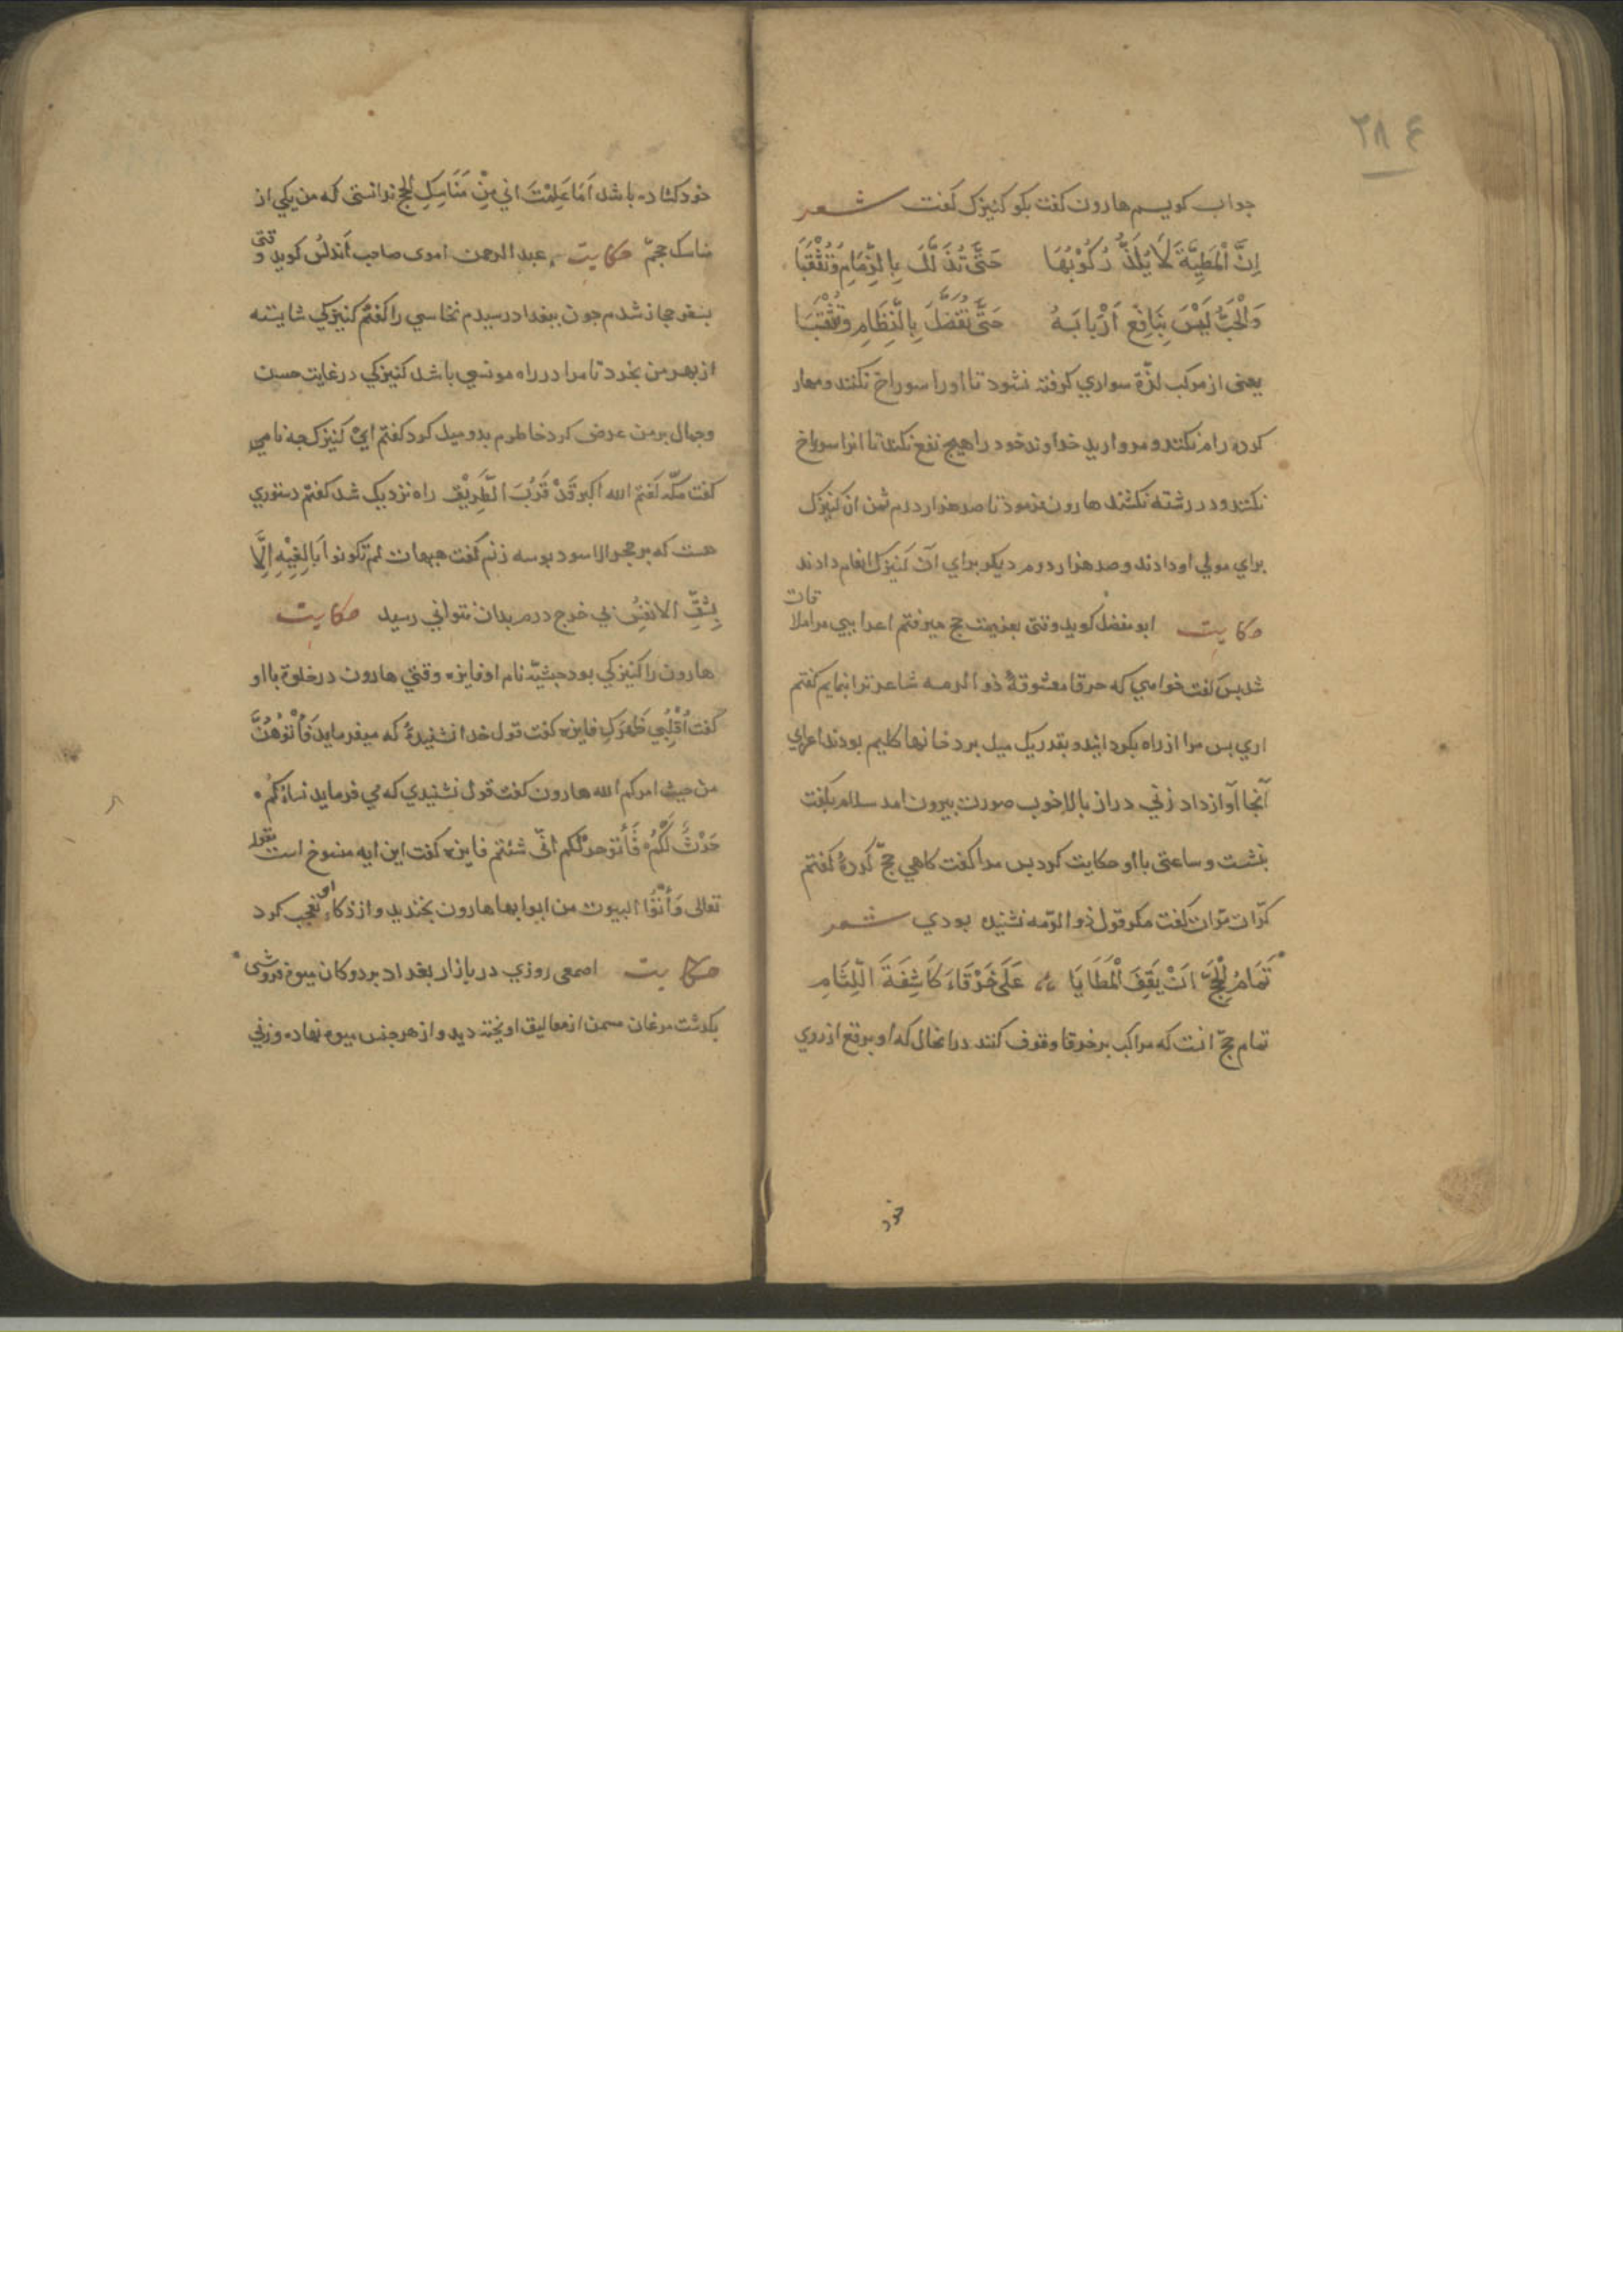 ۲۸۴
جواب کویم هارون کفت بکو کنیزک کفت شعر
اِنَّ الْمَطِیَّةَ لَا یُلَذُّ رُکُوْبُهَا حَتَّی تُذَلَّلَ بِالزِّمَامِ وَتُثْقَبَا
وَالْحَبُّ لَیْسَ بِنَافِعٍ اَرْبَابَهُ حَتَّی تُفَصَّلَ بِالنِّظَامِ وَتُثْقَبَا
یعنی از مرکب لذّة سواری کرفته نشود تا اورا سوراخ نکنند ومهار
کرده رام نکنند و مروارید خداوند خود را هیچ نفع نکند تا انرا سوراخ
نکنند و در رشته نکشند هارون بفرمود تا صد هزار درم ثمن ان کنیزک
برای مولی او دادند و صد هزار درم دیکر برای آن کنیزک انعام دادند
حکایت ابو مفضل کوید وقتی بعزیمت حج میرفتم اعرابیی مرا ملاقات
شد پس کفت خواهی که خرقا معشوقهٔ ذو الرمه شاعر ترا بنمایم کفتم
اری پس مرا از راه بکردانید و بقدر یک میل برد خانها کلیم بودند اعرابی
آنجا آواز داد زنی دراز بالا خوب صورت بیرون امد سلام بکفت
بنشست و ساعتی با او حکایت کرد پس مرا کفت کاهی حجّ کردهٔ کفتم
کرّات مرّات کفت مکر قول ذو الرّمه نشنیده بودی شعر
تَمَامُ الْحَجِّ اَنْ یَقِفَ الْمَطَایَا عَلَی خَرْقَاءَ کَاشِفَةَ اللِّثَامِ
تمام حجّ انست که مراکب بر خرقا وقوف کنند در انحال که او برقع از روی
خود
خود کشاده باشد اَمَا عَلِمْتَ انی مِنْ مَنَاسِكِ الحج ندانستی که من یکی از
مناسک حجم حکایت عبد الرحمن اموی صاحب اَندلُس کوید وقتی
بسفر حجاز شدم جون ببغداد رسیدم نخاسی را کفتم کنیزکی شایسته
از بهر من بخرد تا مرا در راه مونسی باشد کنیزکی در غایت حسن
وجمال بر من عرض کرد خاطرم بدو میل کرد کفتم ایْ کنیزک جه نامی
کفت مکّه کفتم الله اکبر قَدْ قَرُبَ الطَّرِیْق راه نزدیک شد کفتم دستوری
هست که بر حجر الاسود بوسه زنم کفت هیهات لم تکونوا بَالِغِیْهِ اِلَّا
بِشِقِّ الانفُسِ بی خرج درم بدان نتوانی رسید حکایت
هارون را کنیزکی بود حبشیّه نام او فایزه وقتی هارون در خلوة با او
کفت اُقْلِبِی ظَهْرَكِ فایزه کفت قول خدا نشنیدهٔ که میفرماید فَأْتُوهُنَّ
من حیث امرکم الله هارون کفت قول نشنیدی که می فرماید نساؤکُمْ
حَرْثٌ لَکُمْ فَأْتُو حرثکم انّی شئتم فایزه کفت این ایه منسوخ است بقوله
تعالی وَأْتُوْا البیوت من ابوابها هارون بخندید و از ذکاء او تعجب کرد
حکایت اصمعی روزی در بازار بغداد بر دوکان میوه فروشی
بکذشت مرغان مسمن از معالیق اویخته دید و از هر جنس میوه نهاده و زنی